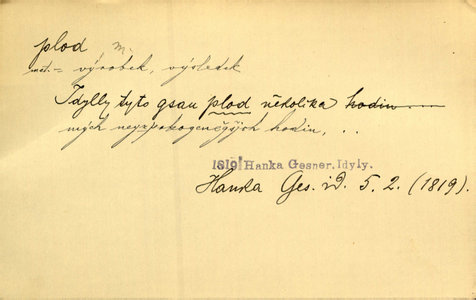 plod m.
met. = výrobek, výsledek
Idylly tyto gsau plod několika hodin
mých neyspokogeněgších hodin, ..
1819 Hanka Gesner. Idyly.
Hanka Ges. id. 5. 2. (1819).